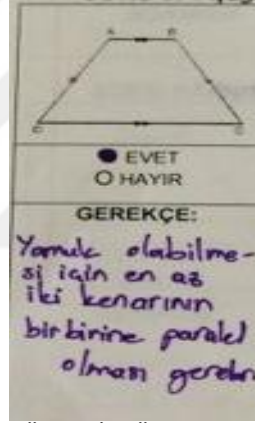 A B
D C
EVET
HAYIR
GEREKÇE:
Yamuk olabilme-
si için en az
iki kenarının
birbirine paralel
olması gerekir